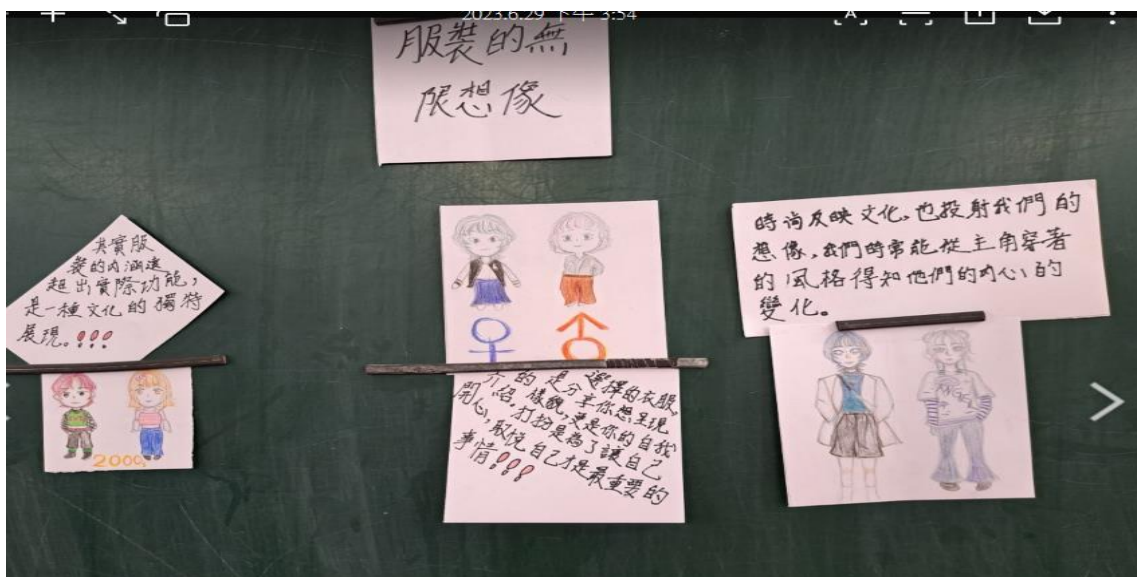 2023.6.29 下午 3:54
服裝的無
限想像
其實服
裝的內涵遠
超出實際功能，
是一種文化的獨特
展現。!!!
2000
介 的 是 選擇的衣服，
紹 樣貌，更是你的自我
開心，打扮是為了讓自己
取悅自己才是最重要的
事情!!!
時尚反映文化，也投射我們的
想像，我們時常能從主角穿著
的風格得知他們的內心的
變化。